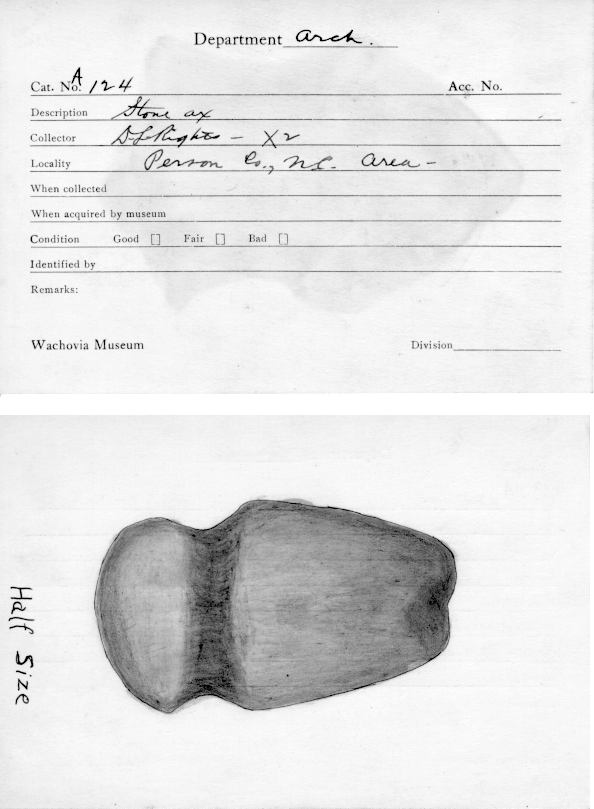 Department Arch.
Cat. No. A 124 Acc. No.
Description Stone ax
Collector D L Rights – X2
Locality Person Co., N.C. Area –
When collected
When acquired by museum
Condition Good [] Fair [] Bad []
Identified by
Remarks:
Wachovia Museum Division
Half Size